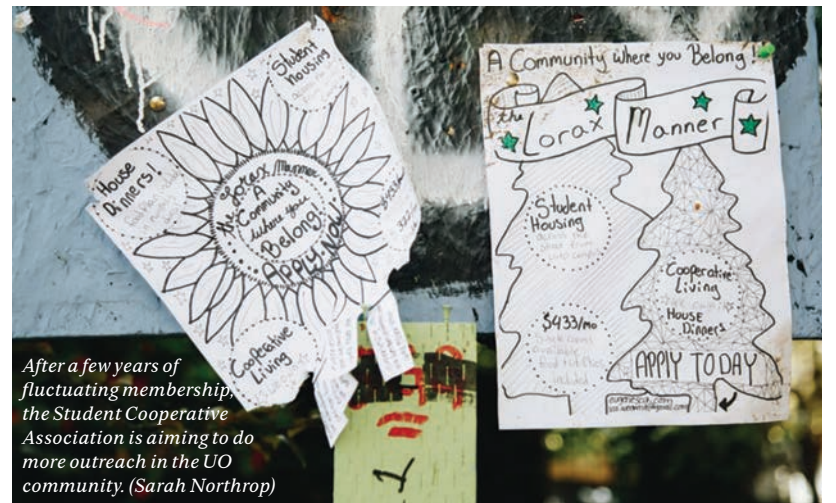 Student
Housing
House
Dinners!
the Lorax Manner
A
Community
where you
Belong!
APPLY Now!
Cooperative
Living
A Community where you Belong!
the Lorax Manner
Student
Housing
$433/mo
included
Cooperative
Living
House
Dinners
APPLY TODAY
1
After a few years of
fluctuating membership,
the Student Cooperative
Association is aiming to do
more outreach in the UO
community. (Sarah Northrop)